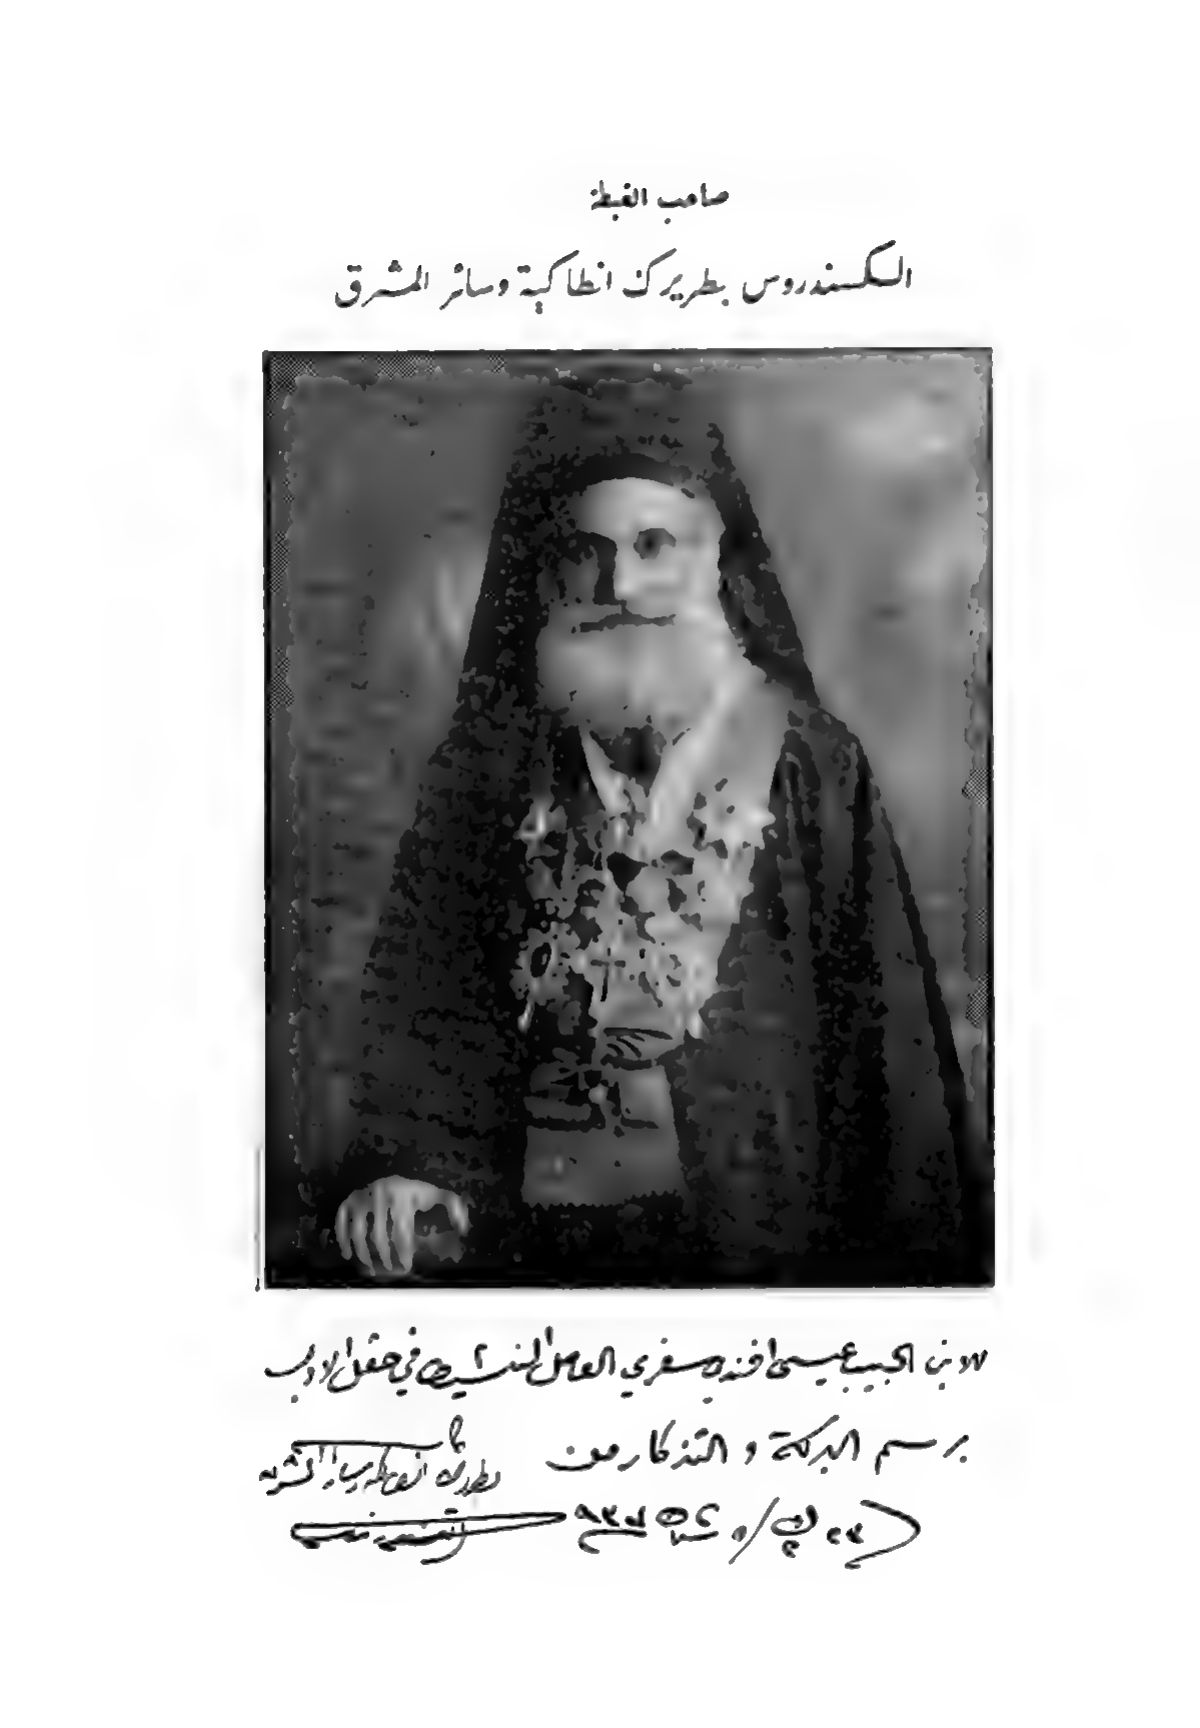 صاحب الغبطة
الكسندروس بطريرك انطاكية وسائر المشرق
للابن الحبيب عيسى افندي سفري العامل المنشيط في حقل الادب
برسم البركة و التذكار من
بطريرك انطاكية وسائر المشرق
الكسندروس